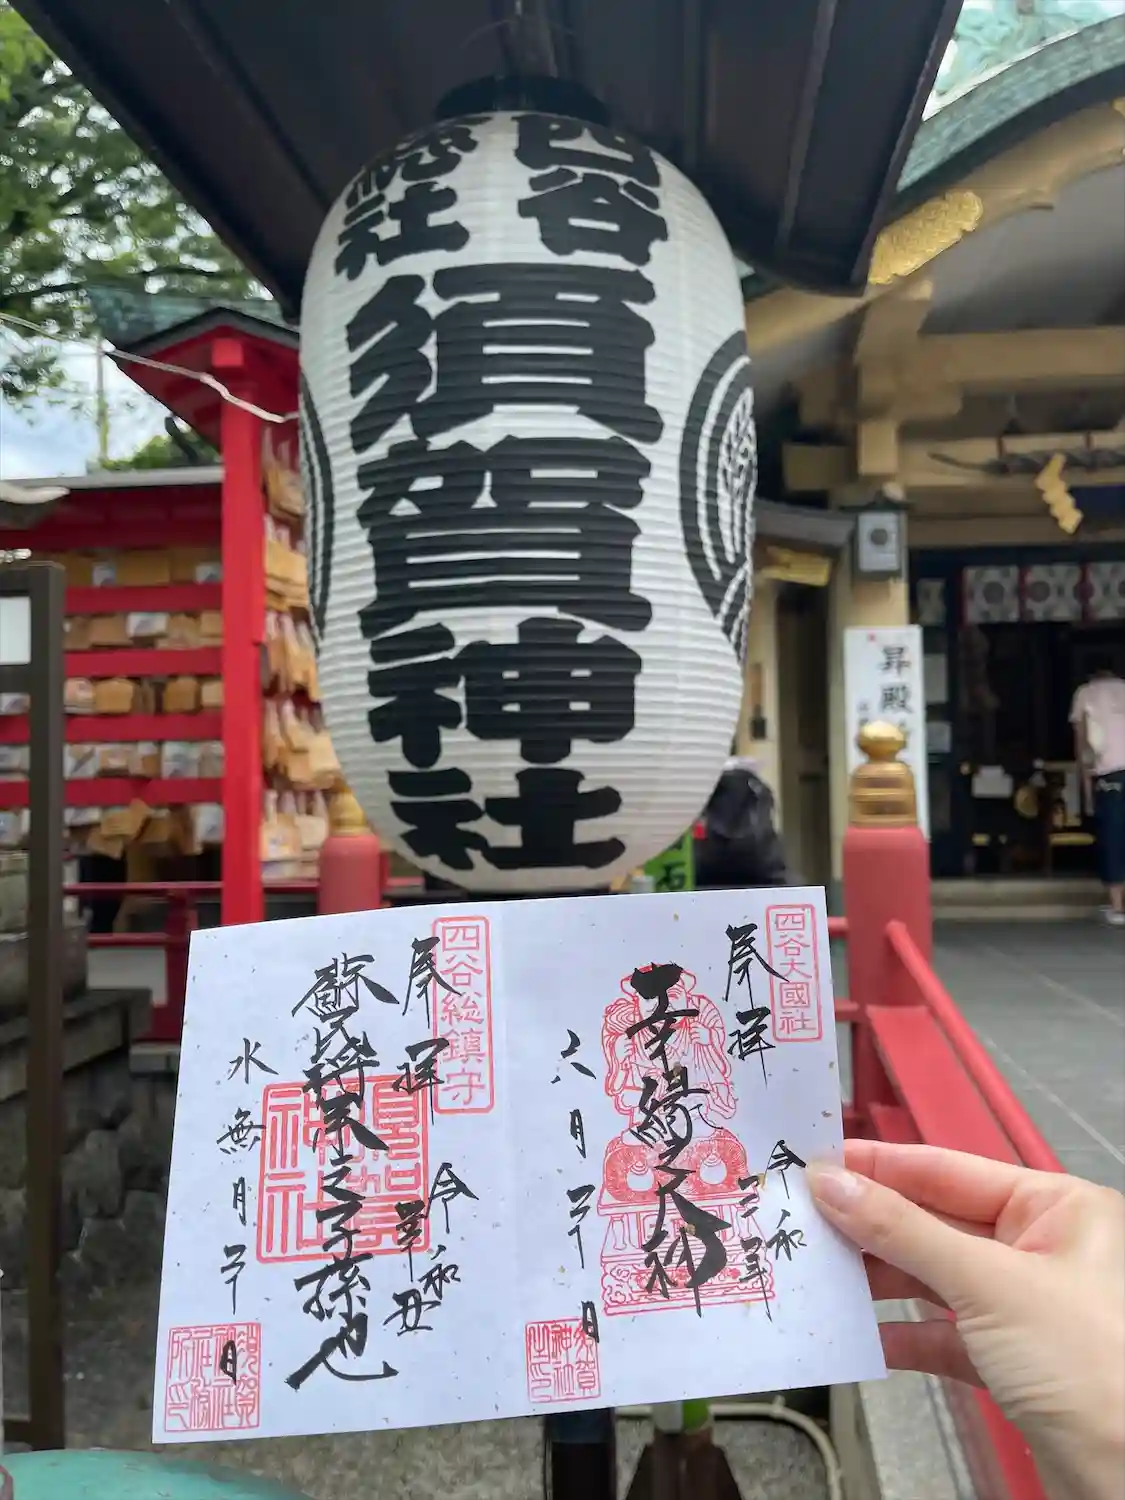 四谷
總社
須賀神社
昇殿
四谷大國社
奉拝
令和三年
幸縁之大神
六月二十日
四谷総鎮守
奉拝
令和辛丑
蘇民将来之子孫也
須賀神社
水無月二十日